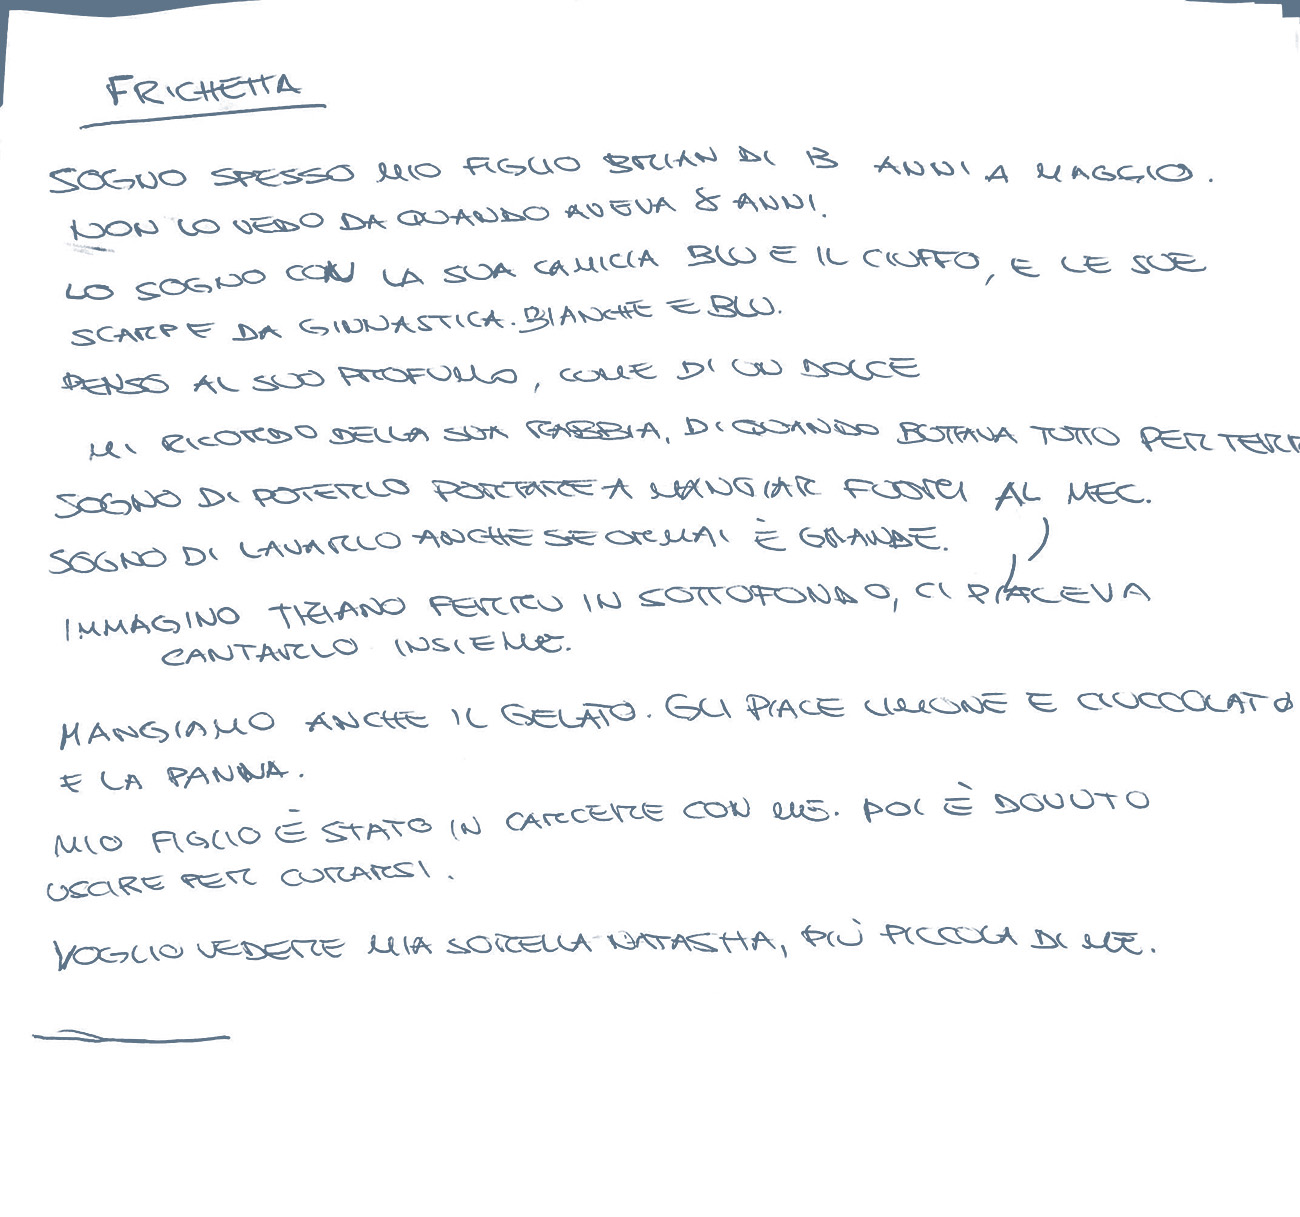 FRICHETTA
SOGNO SPESSO MIO FIGLIO BRIAN DI 13 ANNI A MAGGIO.
NON LO VEDO DA QUANDO AVEVA 8 ANNI.
LO SOGNO CON LA SUA CAMICIA BLU E IL CIUFFO, E LE SUE
SCARPE DA GINNASTICA. BIANCHE E BLU.
PENSO AL SUO PROFUMO, COME DI UN DOLCE
MI RICORDO DELLA SUA RABBIA, DI QUANDO BUTTAVA TUTTO PER TERR
SOGNO DI POTERLO PORTARE A MANGIAR FUORI AL MEC.
SOGNO DI LAVARLO ANCHE SE ORMAI È GRANDE.
IMMAGINO TIZIANO FERRO IN SOTTOFONDO, CI PIACEVA
CANTARLO INSIEME.
MANGIAMO ANCHE IL GELATO. GLI PIACE LIMONE E CIOCCOLATO
E LA PANNA.
MIO FIGLIO È STATO IN CARCERE CON ME. POI È DOVUTO
USCIRE PER CURARSI.
VOGLIO VEDERE MIA SORELLA NATASHA, PIÙ PICCOLA DI ME.